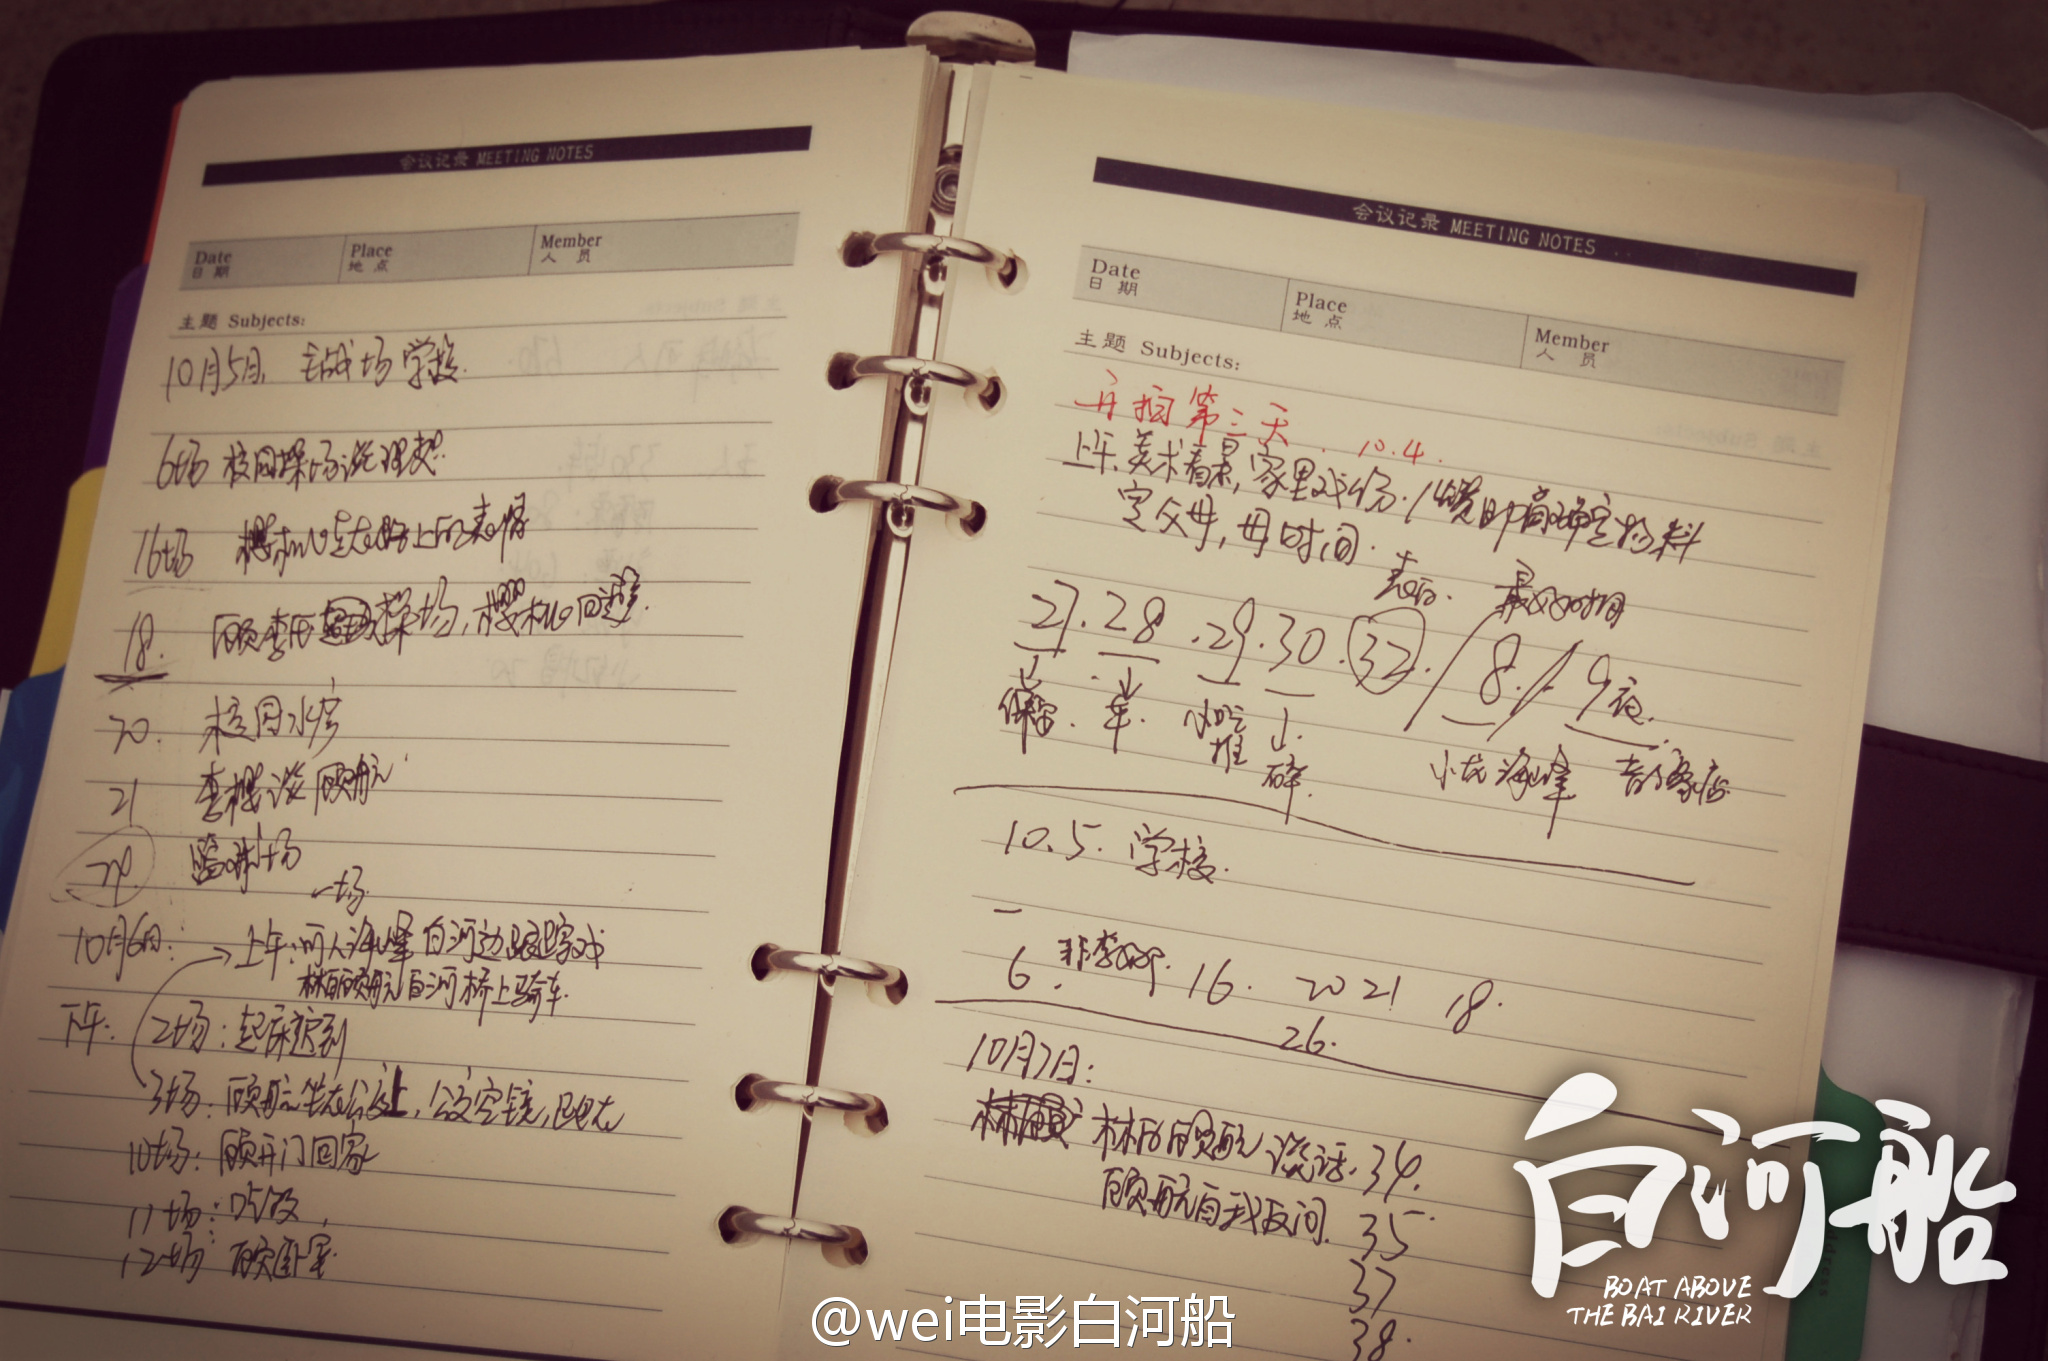 会议记录 MEETING NOTES
Date
日期
Place
地点
Member
人员
主题 Subjects:
10月5日, 主战场 学校.
6场 校园操场谈理想.
16场
18. 操场, 回避.
20. 校园水房
21 李樱谈顾航
24.
一场.
10月6日: 上午: 海峰 白河边跟踪戏
顾航 白河桥上骑车.
下午: 2场: 起床迟到
3场: 顾航坐在公交上, 公交空镜,
10场: 顾开门回家
11场: 吃饭,
12场 顾卧室.
会议记录 MEETING NOTES
Date
日期
Place
地点
Member
人员
主题 Subjects:
开拍第三天. 10.4.
上午. 美术看景, 家里戏份. 确定物料
定父母, 母时间.
最好时间
27. 28. 29. 30. 32. 18. 19 夜.
保留. 车. 小吃摊 碎.
小龙 海峰 音像店
10.5. 学校.
6. 16. 20 21 18.
26.
10月7日:
顾航谈话. 34.
顾航自我反问. 35.
37
38.
白河船
BOAT ABOVE
THE BAI RIVER
@wei电影白河船